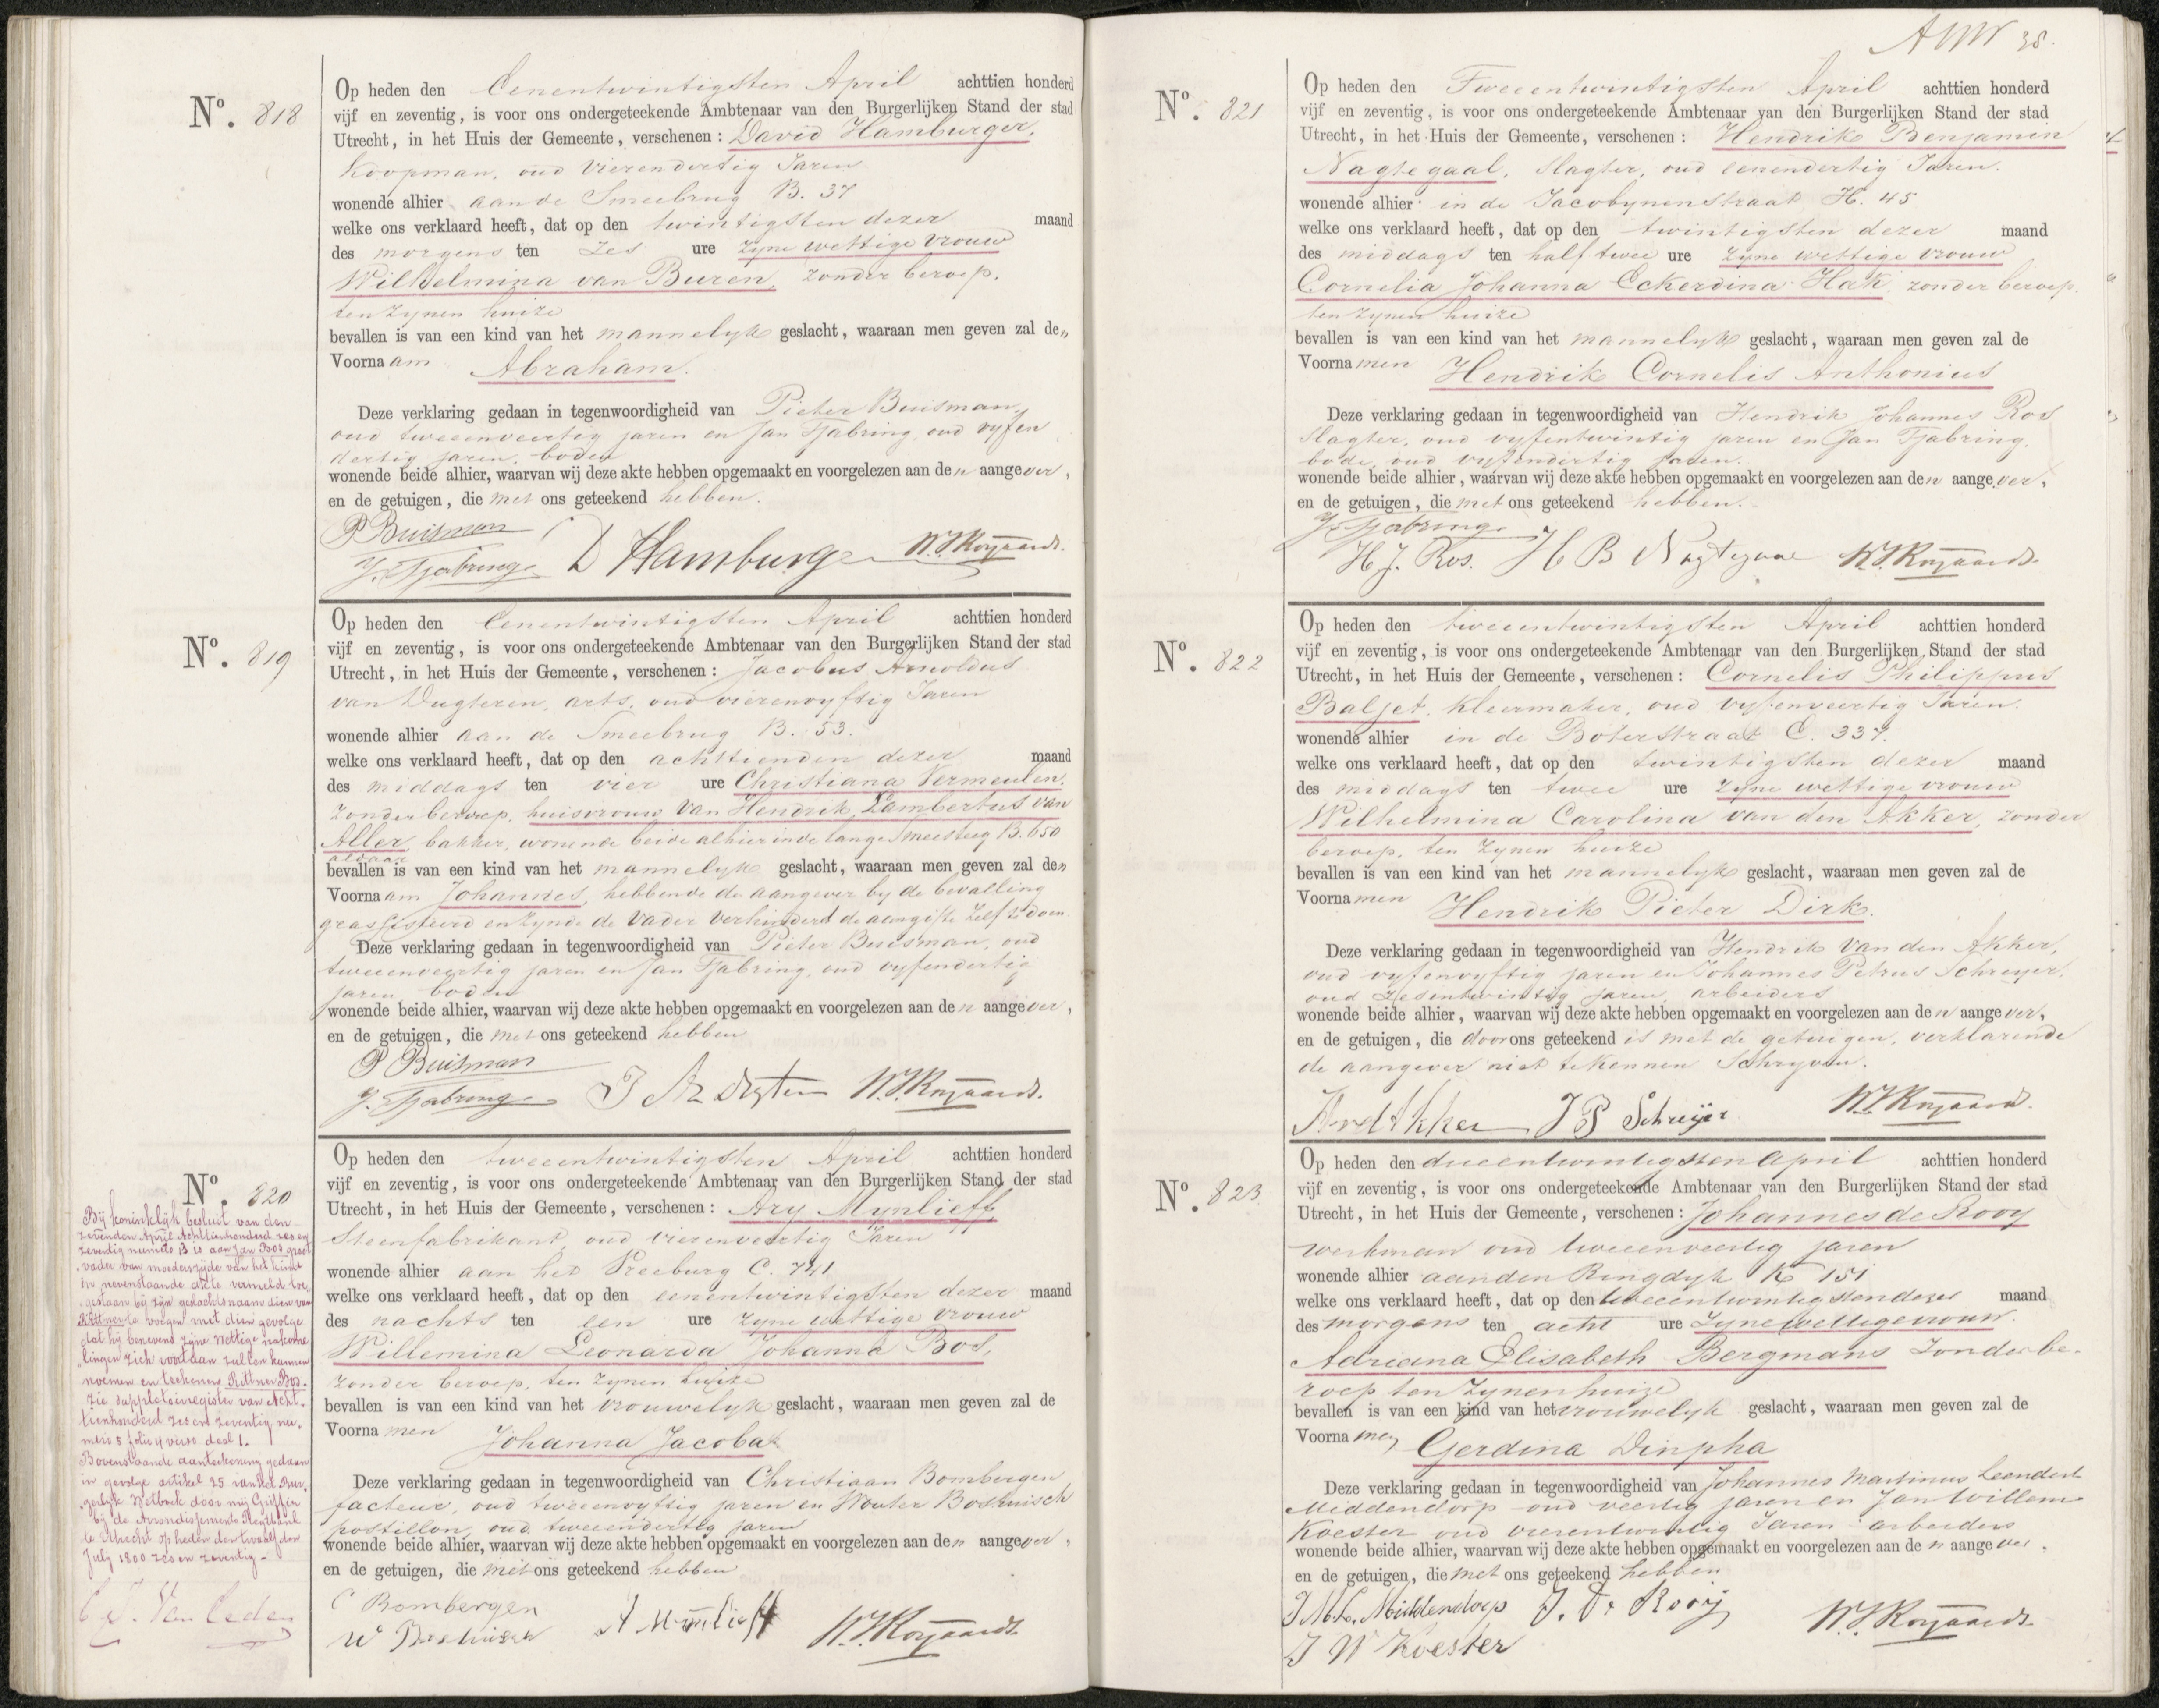 No. 818
Op heden den Eenentwintigsten April achttien honderd
vijf en zeventig, is voor ons ondergeteekende Ambtenaar van den Burgerlijken Stand der stad
Utrecht, in het Huis der Gemeente, verschenen: David Hamburger,
Koopman, oud vierendertig Jaren
wonende alhier aan de Smeebrug B. 37
welke ons verklaard heeft, dat op den twintigsten dezer maand
des morgens ten zes ure zyne wettige vrouw
Wilhelmina van Buren, zonder beroep,
ten zynen huize
bevallen is van een kind van het mannelyk geslacht, waaraan men geven zal den
Voornaam Abraham.
Deze verklaring gedaan in tegenwoordigheid van Pieter Buisman,
oud tweeenveertig jaren en Jan Tjabring, oud vyfen
dertig jaren, boden
wonende beide alhier, waarvan wij deze akte hebben opgemaakt en voorgelezen aan den aangever,
en de getuigen, die met ons geteekend hebben.
P Buisman
J. Tjabring D Hamburger W.J. Royaards.
No. 819
Op heden den Eenentwintigsten April achttien honderd
vijf en zeventig, is voor ons ondergeteekende Ambtenaar van den Burgerlijken Stand der stad
Utrecht, in het Huis der Gemeente, verschenen: Jacobus Arnoldus
van Dugteren, arts, oud vierenvyftig Jaren
wonende alhier aan de Smeebrug B. 53.
welke ons verklaard heeft, dat op den achttienden dezer maand
des middags ten vier ure Christiana Vermeulen,
zonder beroep, huisvrouw van Hendrik Lambertus van
Aller, bakker, wonende beide alhier in de lange Smeesteeg B. 650
aldaar
bevallen is van een kind van het mannelyk geslacht, waaraan men geven zal den
Voornaam Johannes, hebbende de aangever by de bevalling
geassisteerd en zynde de vader verhinderd de aangifte zelf te doen
Deze verklaring gedaan in tegenwoordigheid van Pieter Buisman, oud
tweeenveertig jaren en Jan Tjabring, oud vyfendertig
jaren, boden
wonende beide alhier, waarvan wij deze akte hebben opgemaakt en voorgelezen aan den aangever,
en de getuigen, die met ons geteekend hebben
P Buisman
J. Tjabring W.J. Royaards.
No. 820
Op heden den tweeentwintigsten April achttien honderd
vijf en zeventig, is voor ons ondergeteekende Ambtenaar van den Burgerlijken Stand der stad
Utrecht, in het Huis der Gemeente, verschenen: Ary Munlieff,
Steenfabrikant, oud vierenveertig Jaren
wonende alhier aan het Vreeburg C. 741
welke ons verklaard heeft, dat op den eenentwintigsten dezer maand
des nachts ten een ure zyne wettige vrouw
Willemina Leonarda Johanna Bos,
zonder beroep, ten zynen huize
bevallen is van een kind van het vrouwelyk geslacht, waaraan men geven zal de
Voornamen Johanna Jacoba
Deze verklaring gedaan in tegenwoordigheid van Christiaan Bombergen
facteur, oud tweeenvyftig jaren en Wouter Boshuisch
postillon, oud tweeendertig jaren
wonende beide alhier, waarvan wij deze akte hebben opgemaakt en voorgelezen aan den aangever,
en de getuigen, die met ons geteekend hebben
C Bombergen
W Boshuisch A Munlieff W.J. Royaards
Bij koninklijk besluit van den
zevenden April Achttienhonderd zes en
zeventig nummer 13 is aan Jan Bos groot
vader van moederszijde van het kind
in nevenstaande akte vermeld toe
gestaan bij zijn geslachtsnaam dien van
Rittner te voegen met dien gevolge
dat hij benevens zijne wettige nakome
lingen zich voortaan zullen kunnen
noemen en teekenen Rittner Bos.
Zie suppletoir register van Acht
tienhonderd zes en zeventig num
mero 5 folio 4 verso deel 1.
Bovenstaande aanteekening gedaan
in gevolge artikel 25 van het Bur
gerlijk Wetboek door mij Griffier
bij de Arrondissements Regtbank
te Utrecht op heden den twaalfden
July 1800 zes en zeventig.
38.
No. 821
Op heden den Tweeentwintigsten April achttien honderd
vijf en zeventig, is voor ons ondergeteekende Ambtenaar van den Burgerlijken Stand der stad
Utrecht, in het Huis der Gemeente, verschenen: Hendrik Benjamin
Nagtegaal, slagter, oud eenendertig Jaren.
wonende alhier in de Jacobynenstraat H. 45
welke ons verklaard heeft, dat op den twintigsten dezer maand
des middags ten half twee ure zyne wettige vrouw
Cornelia Johanna Eckerdina Hak, zonder beroep,
ten zynen huize
bevallen is van een kind van het mannelyk geslacht, waaraan men geven zal de
Voornamen Hendrik Cornelis Anthonius
Deze verklaring gedaan in tegenwoordigheid van Hendrik Johannes Ros
slagter, oud vyfentwintig jaren en Jan Tjabring,
bode, oud vyfendertig jaren.
wonende beide alhier, waarvan wij deze akte hebben opgemaakt en voorgelezen aan den aangever,
en de getuigen, die met ons geteekend hebben.
J. Tjabring
H J. Ros. H B Nagtegaal W.J. Royaards
No. 822
Op heden den tweeentwintigsten April achttien honderd
vijf en zeventig, is voor ons ondergeteekende Ambtenaar van den Burgerlijken Stand der stad
Utrecht, in het Huis der Gemeente, verschenen: Cornelis Philippus
Baljet, Kleermaker, oud vyfenveertig Jaren.
wonende alhier in de Boterstraat E. 337.
welke ons verklaard heeft, dat op den twintigsten dezer maand
des middags ten twee ure zyne wettige vrouw
Wilhelmina Carolina van den Akker, zonder
beroep, ten zynen huize
bevallen is van een kind van het mannelyk geslacht, waaraan men geven zal de
Voornamen Hendrik Pieter Dirk.
Deze verklaring gedaan in tegenwoordigheid van Hendrik van den Akker,
oud vyfenvyftig jaren en Johannes Petrus Schreyer,
oud zesentwintig jaren, arbeiders
wonende beide alhier, waarvan wij deze akte hebben opgemaakt en voorgelezen aan den aangever,
en de getuigen, die door ons geteekend is met de getuigen, verklarende
de aangever niet te kunnen schryven.
HvdAkker J P Schreijer W.J. Royaards.
No. 823
Op heden den drieentwintigsten April achttien honderd
vijf en zeventig, is voor ons ondergeteekende Ambtenaar van den Burgerlijken Stand der stad
Utrecht, in het Huis der Gemeente, verschenen: Johannes de Rooy
werkman oud tweeenveertig jaren
wonende alhier aan den Ringdyk K 151
welke ons verklaard heeft, dat op den tweeentwintigsten dezer maand
des morgens ten acht ure zyne wettige vrouw
Adriana Elisabeth Bergmans zonder be-
roep ten zynen huize
bevallen is van een kind van het vrouwelyk geslacht, waaraan men geven zal de
Voornamen Gerdina Dinpha
Deze verklaring gedaan in tegenwoordigheid van Johannes Martinus Leendert
Middendorp oud veertig jaren en Jan Willem
Koester oud vierentwintig Jaren arbeiders
wonende beide alhier, waarvan wij deze akte hebben opgemaakt en voorgelezen aan den aangever,
en de getuigen, die met ons geteekend hebben
J M L. Middendorp J. De Rooij W.J. Royaards
J W Koester